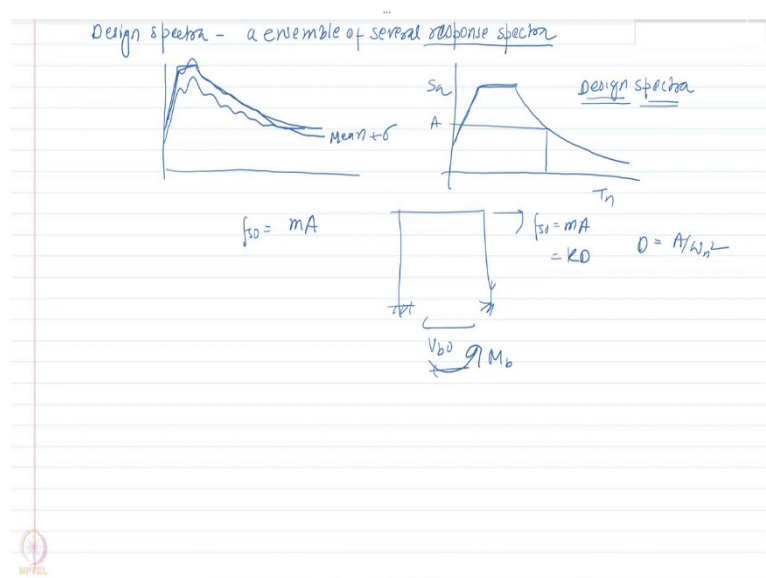 Design spectra - a ensemble of several response spectra
Sa
Design spectra
A
Mean + σ
Tn
fso = mA
fso = mA
= kD
D = A/ωn²
Vbo
Mb
NPTEL